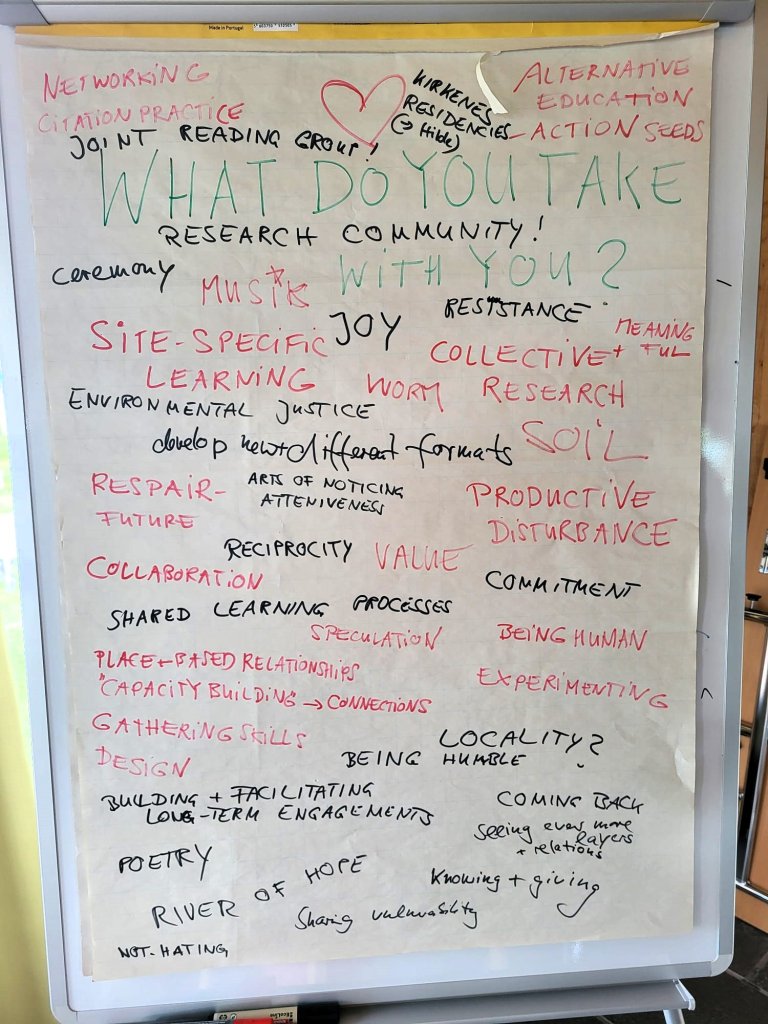 Made in Portugal
NETWORKING
CITATION PRACTICE
JOINT READING GROUP!
KIRKENES
RESIDENCIES
ALTERNATIVE
EDUCATION
- ACTION SEEDS
WHAT DO YOU TAKE
RESEARCH COMMUNITY!
WITH YOU?
ceremony
MUSiK
RESISTANCE
JOY
SITE-SPECIFIC
LEARNING
COLLECTIVE + MEANING
FUL
WORM RESEARCH
ENVIRONMENTAL JUSTICE
develop new+different formats
SOIL
RESPAIR-
FUTURE
ARTS OF NOTICING
ATTENIVENESS
PRODUCTIVE
DISTURBANCE
RECIPROCITY
VALUE
COLLABORATION
COMMITMENT
SHARED LEARNING PROCESSES
SPECULATION
BEING HUMAN
PLACE-BASED RELATIONSHIPS
"CAPACITY BUILDING" → CONNECTIONS
EXPERIMENTING
GATHERING SKILLS
DESIGN
LOCALITY?
BEING HUMBLE
BUILDING + FACILITATING
LONG-TERM ENGAGEMENTS
COMING BACK
seeing ever more
layers
+ relations
POETRY
RIVER OF HOPE
Knowing + giving
Sharing vulnerability
NOT-HATING